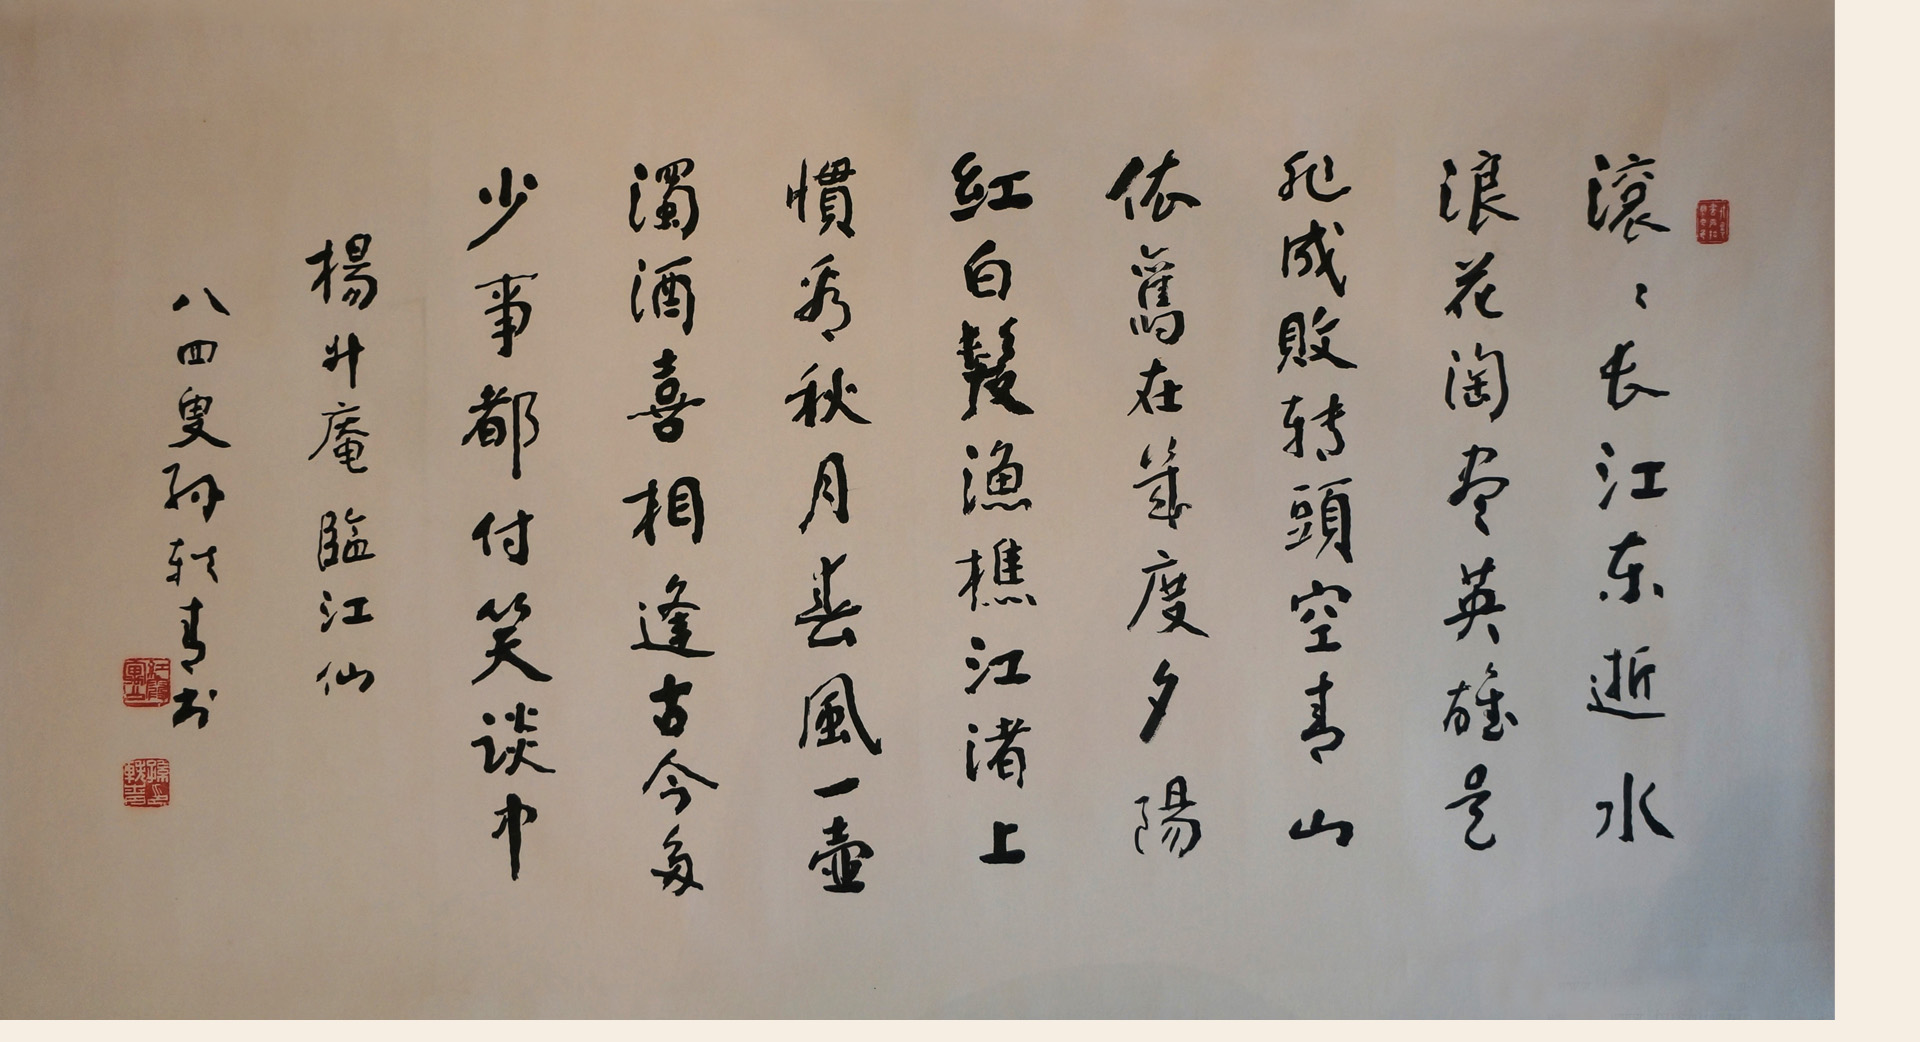 滚〻长江东逝水
浪花淘尽英雄是
非成敗转頭空青山
依舊在幾度夕陽
紅白髮漁樵江渚上
慣看秋月春風一壺
濁酒喜相逢古今多
少事都付笑談中
楊升庵臨江仙
八四叟孙轶青书